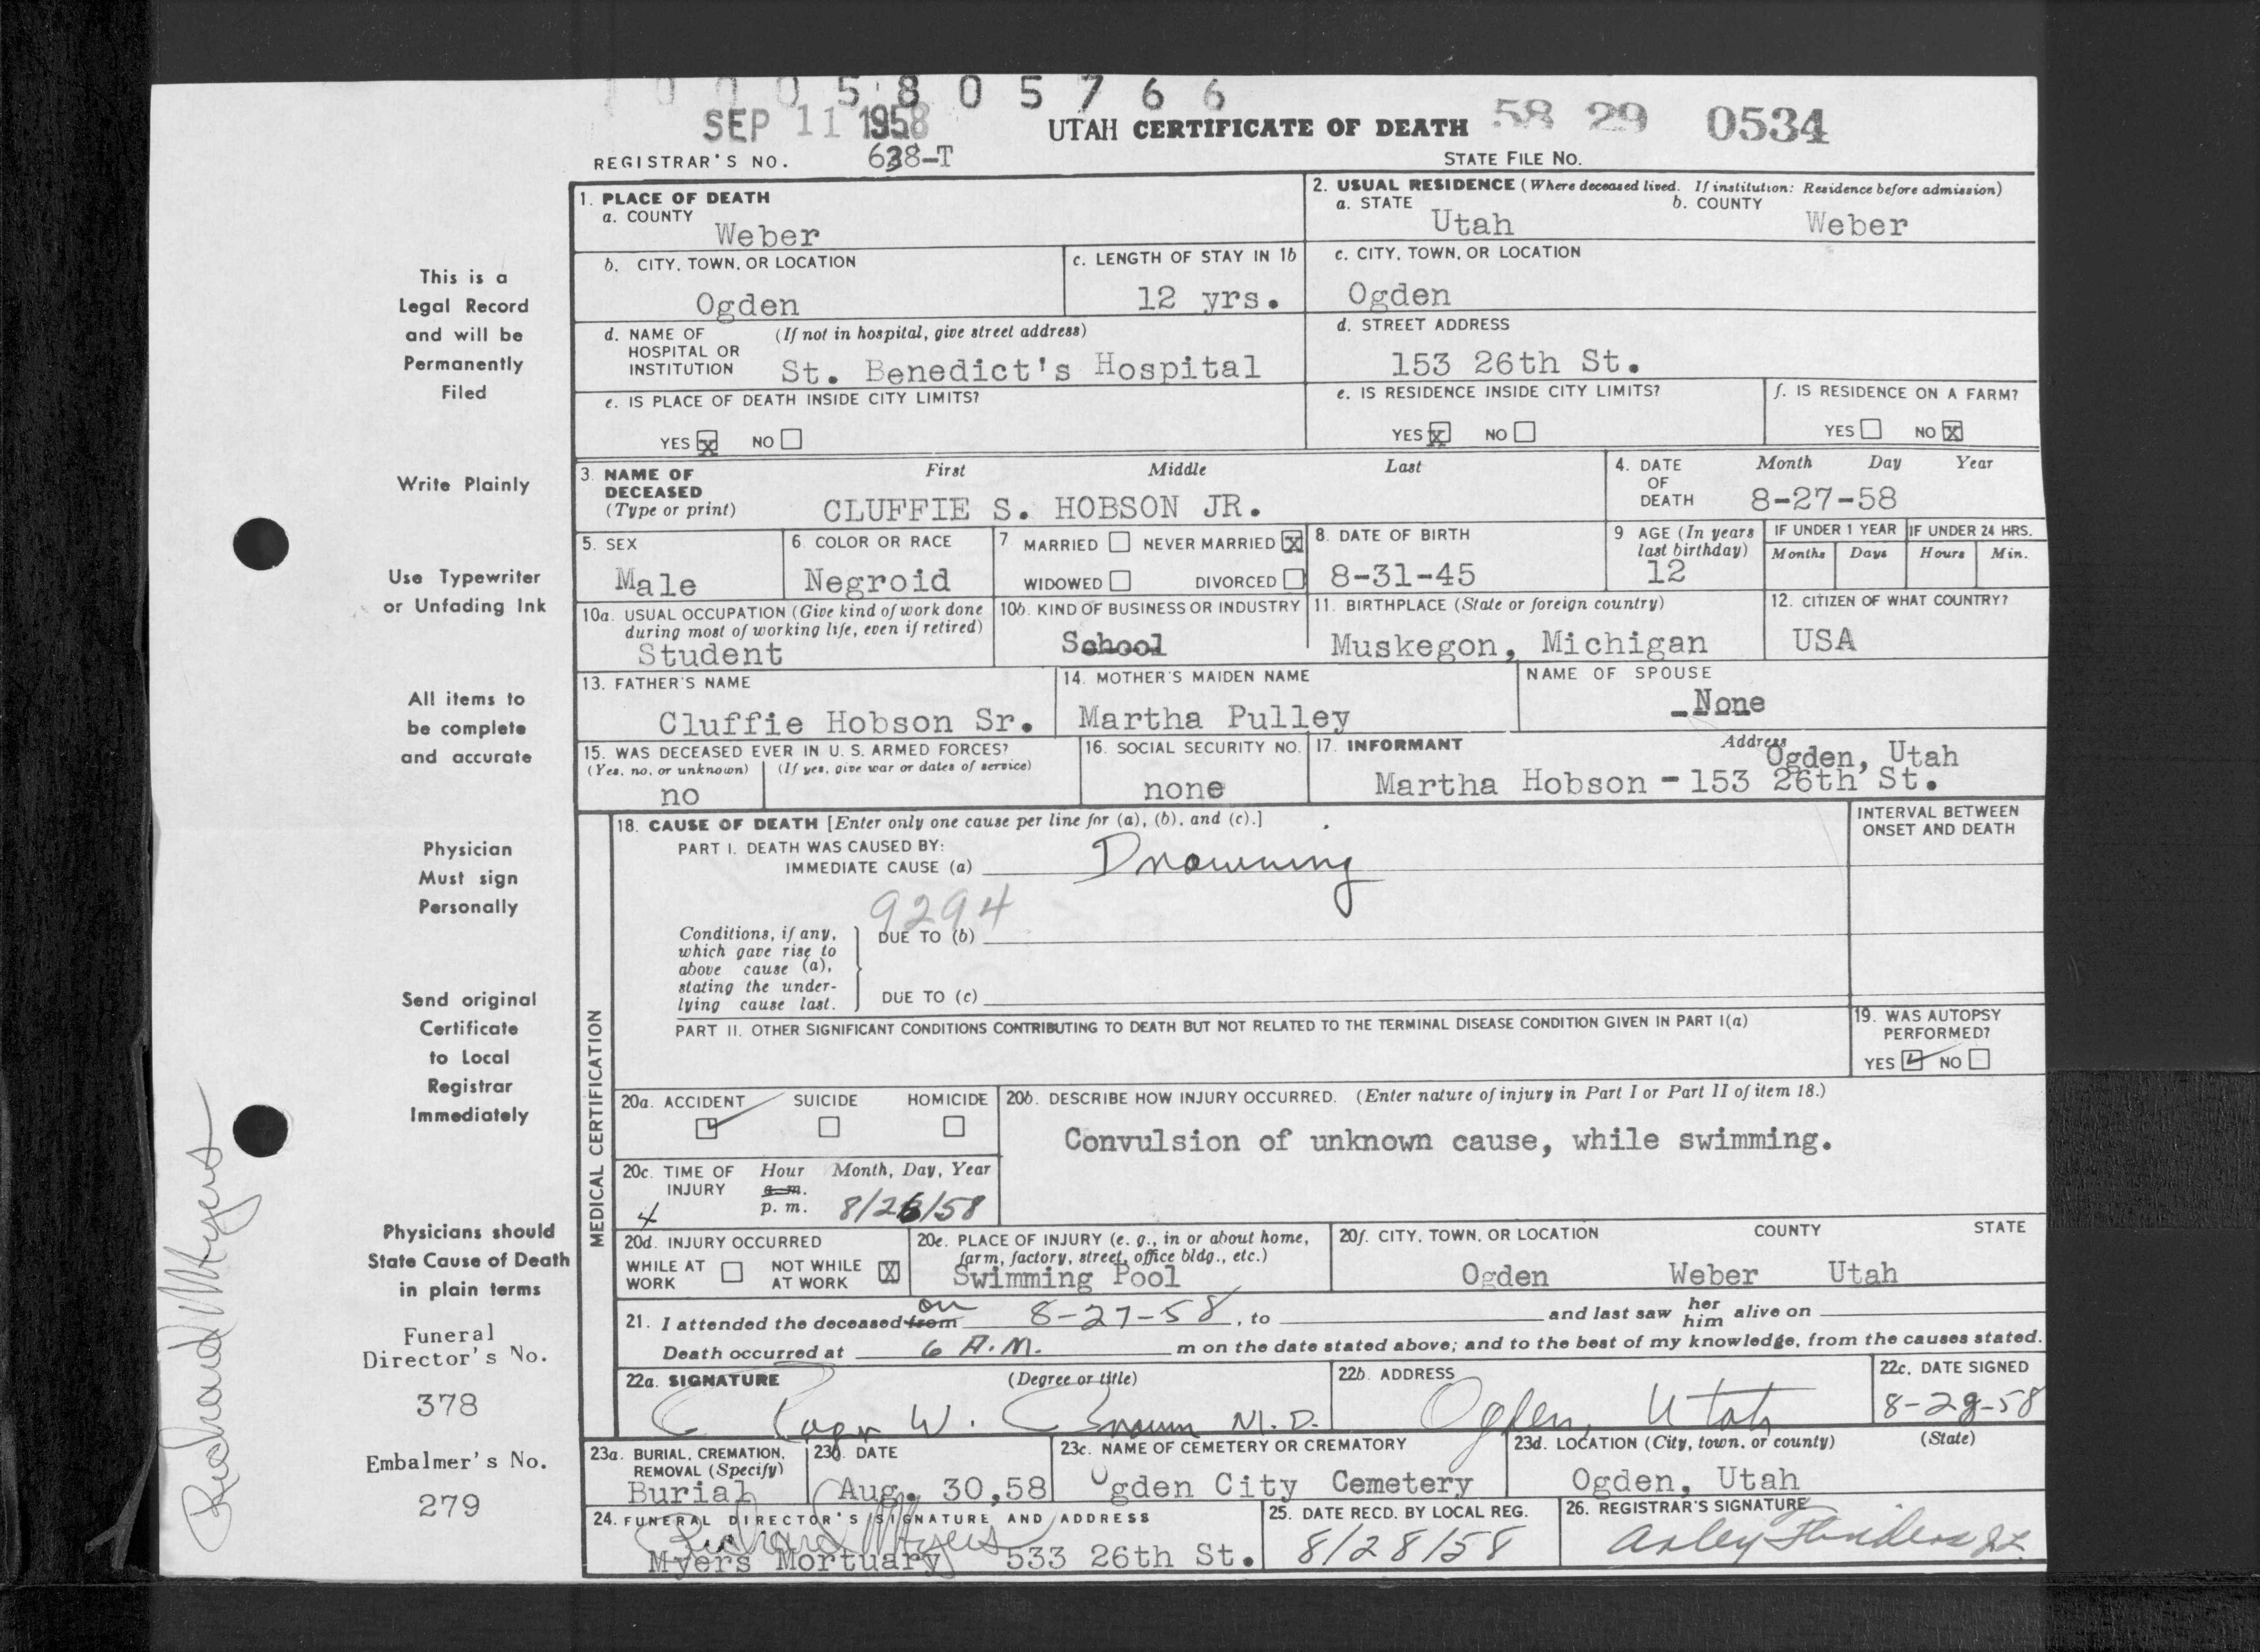 1 0 0 0 5 8 0 5 7 6 6
SEP 11 1958
UTAH CERTIFICATE OF DEATH 58 29 0534
REGISTRAR'S NO. 638-T
STATE FILE NO.
1. PLACE OF DEATH
a. COUNTY
Weber
2. USUAL RESIDENCE (Where deceased lived. If institution: Residence before admission)
a. STATE
Utah
b. COUNTY
Weber
b. CITY, TOWN, OR LOCATION
Ogden
c. LENGTH OF STAY IN 1b
12 yrs.
c. CITY, TOWN, OR LOCATION
Ogden
d. NAME OF (If not in hospital, give street address)
HOSPITAL OR
INSTITUTION St. Benedict's Hospital
d. STREET ADDRESS
153 26th St.
e. IS PLACE OF DEATH INSIDE CITY LIMITS?
YES X NO
e. IS RESIDENCE INSIDE CITY LIMITS?
YES X NO
f. IS RESIDENCE ON A FARM?
YES NO X
3. NAME OF DECEASED
(Type or print)
First Middle Last
CLUFFIE S. HOBSON JR.
4. DATE OF DEATH
Month Day Year
8-27-58
5. SEX
Male
6. COLOR OR RACE
Negroid
7. MARRIED NEVER MARRIED X
WIDOWED DIVORCED
8. DATE OF BIRTH
8-31-45
9 AGE (In years
last birthday)
12
IF UNDER 1 YEAR
Months Days
IF UNDER 24 HRS.
Hours Min.
10a. USUAL OCCUPATION (Give kind of work done
during most of working life, even if retired)
Student
10b. KIND OF BUSINESS OR INDUSTRY
School
11. BIRTHPLACE (State or foreign country)
Muskegon, Michigan
12. CITIZEN OF WHAT COUNTRY?
USA
13. FATHER'S NAME
Cluffie Hobson Sr.
14. MOTHER'S MAIDEN NAME
Martha Pulley
NAME OF SPOUSE
None
15. WAS DECEASED EVER IN U. S. ARMED FORCES?
(Yes, no, or unknown) (If yes, give war or dates of service)
no
16. SOCIAL SECURITY NO.
none
17. INFORMANT Address
Ogden, Utah
Martha Hobson - 153 26th St.
MEDICAL CERTIFICATION
18. CAUSE OF DEATH [Enter only one cause per line for (a), (b), and (c).]
INTERVAL BETWEEN
ONSET AND DEATH
PART I. DEATH WAS CAUSED BY:
IMMEDIATE CAUSE (a) Drowning
9294
Conditions, if any,
which gave rise to
above cause (a),
stating the under-
lying cause last.
DUE TO (b)
DUE TO (c)
PART II. OTHER SIGNIFICANT CONDITIONS CONTRIBUTING TO DEATH BUT NOT RELATED TO THE TERMINAL DISEASE CONDITION GIVEN IN PART I(a)
19. WAS AUTOPSY
PERFORMED?
YES ✓ NO
20a. ACCIDENT ✓ SUICIDE HOMICIDE
20b. DESCRIBE HOW INJURY OCCURRED. (Enter nature of injury in Part I or Part II of item 18.)
Convulsion of unknown cause, while swimming.
20c. TIME OF INJURY
Hour Month, Day, Year
a. m.
4 p. m. 8/26/58
20d. INJURY OCCURRED
WHILE AT WORK
NOT WHILE AT WORK X
20e. PLACE OF INJURY (e. g., in or about home,
farm, factory, street, office bldg., etc.)
Swimming Pool
20f. CITY, TOWN, OR LOCATION COUNTY STATE
Ogden Weber Utah
21. I attended the deceased from on 8-27-58, to and last saw her him alive on
Death occurred at 6 A.M. m on the date stated above; and to the best of my knowledge, from the causes stated.
22a. SIGNATURE (Degree or title)
W. M.D.
22b. ADDRESS
Ogden, Utah
22c. DATE SIGNED
8-28-58
23a. BURIAL, CREMATION,
REMOVAL (Specify)
Burial
23b. DATE
Aug. 30,58
23c. NAME OF CEMETERY OR CREMATORY
Ogden City Cemetery
23d. LOCATION (City, town, or county) (State)
Ogden, Utah
24. FUNERAL DIRECTOR'S SIGNATURE AND ADDRESS
Richard Myers
Myers Mortuary 533 26th St.
25. DATE RECD. BY LOCAL REG.
8/28/58
26. REGISTRAR'S SIGNATURE
This is a
Legal Record
and will be
Permanently
Filed
Write Plainly
Use Typewriter
or Unfading Ink
All items to
be complete
and accurate
Physician
Must sign
Personally
Send original
Certificate
to Local
Registrar
Immediately
Physicians should
State Cause of Death
in plain terms
Funeral
Director's No.
378
Embalmer's No.
279
Richard Myers